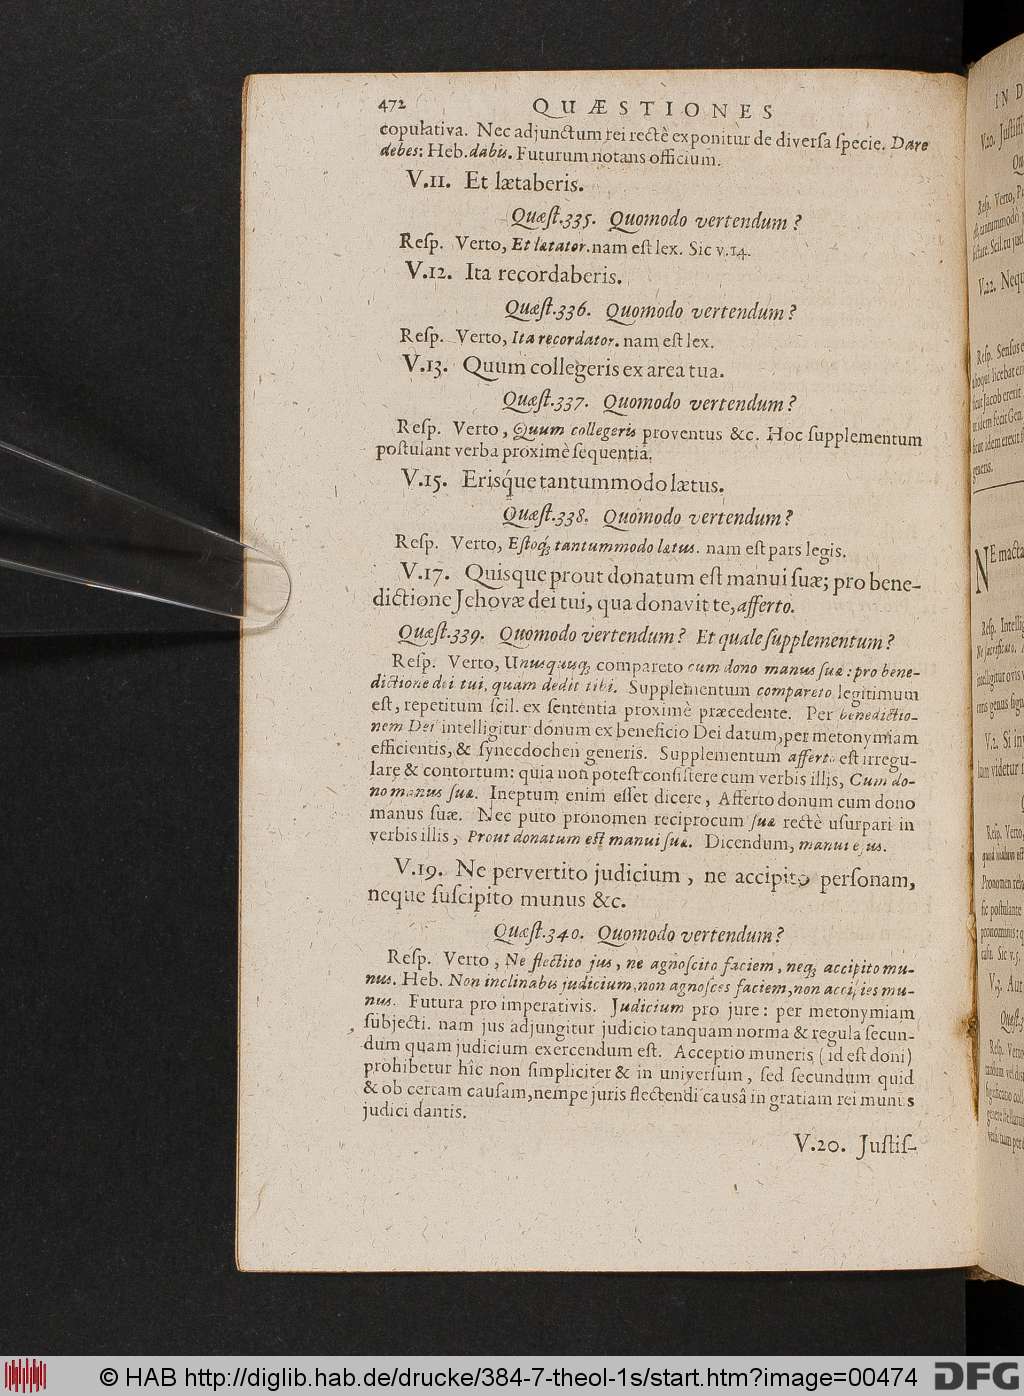 472 QUÆSTIONES
copulativa. Nec adjunctum rei rectè exponitur de diverſa ſpecie. Dare
debes: Heb. dabis. Futurum notans officium.
V.11. Et lætaberis.
Quæſt.335. Quomodo vertendum?
Reſp. Verto, Et lætator. nam eſt lex. Sic v.14.
V.12. Ita recordaberis.
Quæſt.336. Quomodo vertendum?
Reſp. Verto, Ita recordator. nam eſt lex.
V.13. Quum collegeris ex area tua.
Quæſt.337. Quomodo vertendum?
Reſp. Verto, Quum collegeris proventus &c. Hoc ſupplementum
poſtulant verba proximè ſequentia.
V.15. Eriſque tantummodo lætus.
Quæſt.338. Quomodo vertendum?
Reſp. Verto, Eſtoq; tantummodo lætus. nam eſt pars legis.
V.17. Quisque prout donatum eſt manui ſuæ; pro bene-
dictione Jehovæ dei tui, qua donavit te, afferto.
Quæſt.339. Quomodo vertendum? Et quale ſupplementum?
Reſp. Verto, Unusquisq; compareto cum dono manus ſuæ: pro bene-
dictione dei tui, quam dedit tibi. Supplementum compareto legitimum
eſt, repetitum ſcil. ex ſententia proximè præcedente. Per benedictio-
nem Dei intelligitur donum ex beneficio Dei datum, per metonymiam
efficientis, & ſynecdochen generis. Supplementum afferto eſt irregu-
lare & contortum: quia non poteſt conſiſtere cum verbis illis, Cum do-
no manus ſuæ. Ineptum enim eſſet dicere, Afferto donum cum dono
manus ſuæ. Nec puto pronomen reciprocum ſuæ rectè uſurpari in
verbis illis, Prout donatum eſt manui ſuæ. Dicendum, manui ejus.
V.19. Ne pervertito judicium, ne accipito perſonam,
neque ſuſcipito munus &c.
Quæſt.340. Quomodo vertendum?
Reſp. Verto, Ne flectito jus, ne agnoſcito faciem, neq; accipito mu-
nus. Heb. Non inclinabis judicium, non agnoſces faciem, non accipies mu-
nus. Futura pro imperativis. Judicium pro jure: per metonymiam
ſubjecti. nam jus adjungitur judicio tanquam norma & regula ſecun-
dum quam judicium exercendum eſt. Acceptio muneris (id eſt doni)
prohibetur hîc non ſimpliciter & in univerſum, ſed ſecundum quid
& ob certam cauſam, nempe juris flectendi cauſâ in gratiam rei munus
judici dantis.
V.20. Juſtiſ-
IN D
V.20. Juſtiſ
Reſp. Verto,
V.22. Nequ
Reſp. Senſus e
generis.
NE macta
Reſp. Intellig
V.2. Si in
Reſp. Verto,
V.3. Aut
Reſp. Verto
© HAB http://diglib.hab.de/drucke/384-7-theol-1s/start.htm?image=00474
DFG